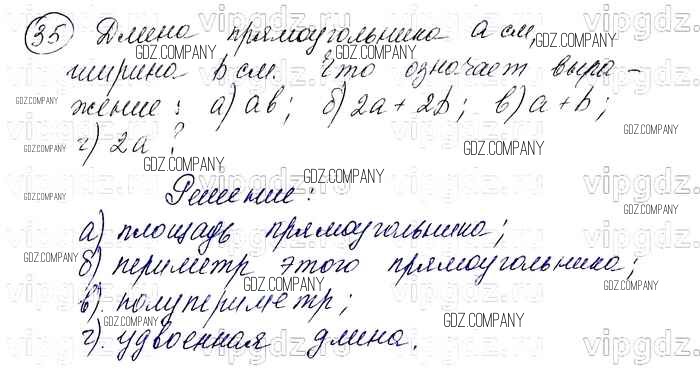 35) Длина прямоугольника a см,
ширина b см. Что означает выра-
жение: а) ab; б) 2a + 2b; в) a + b;
г) 2a?
Решение:
а) площадь прямоугольника;
б) периметр этого прямоугольника;
в). полупериметр;
г). удвоенная длина.